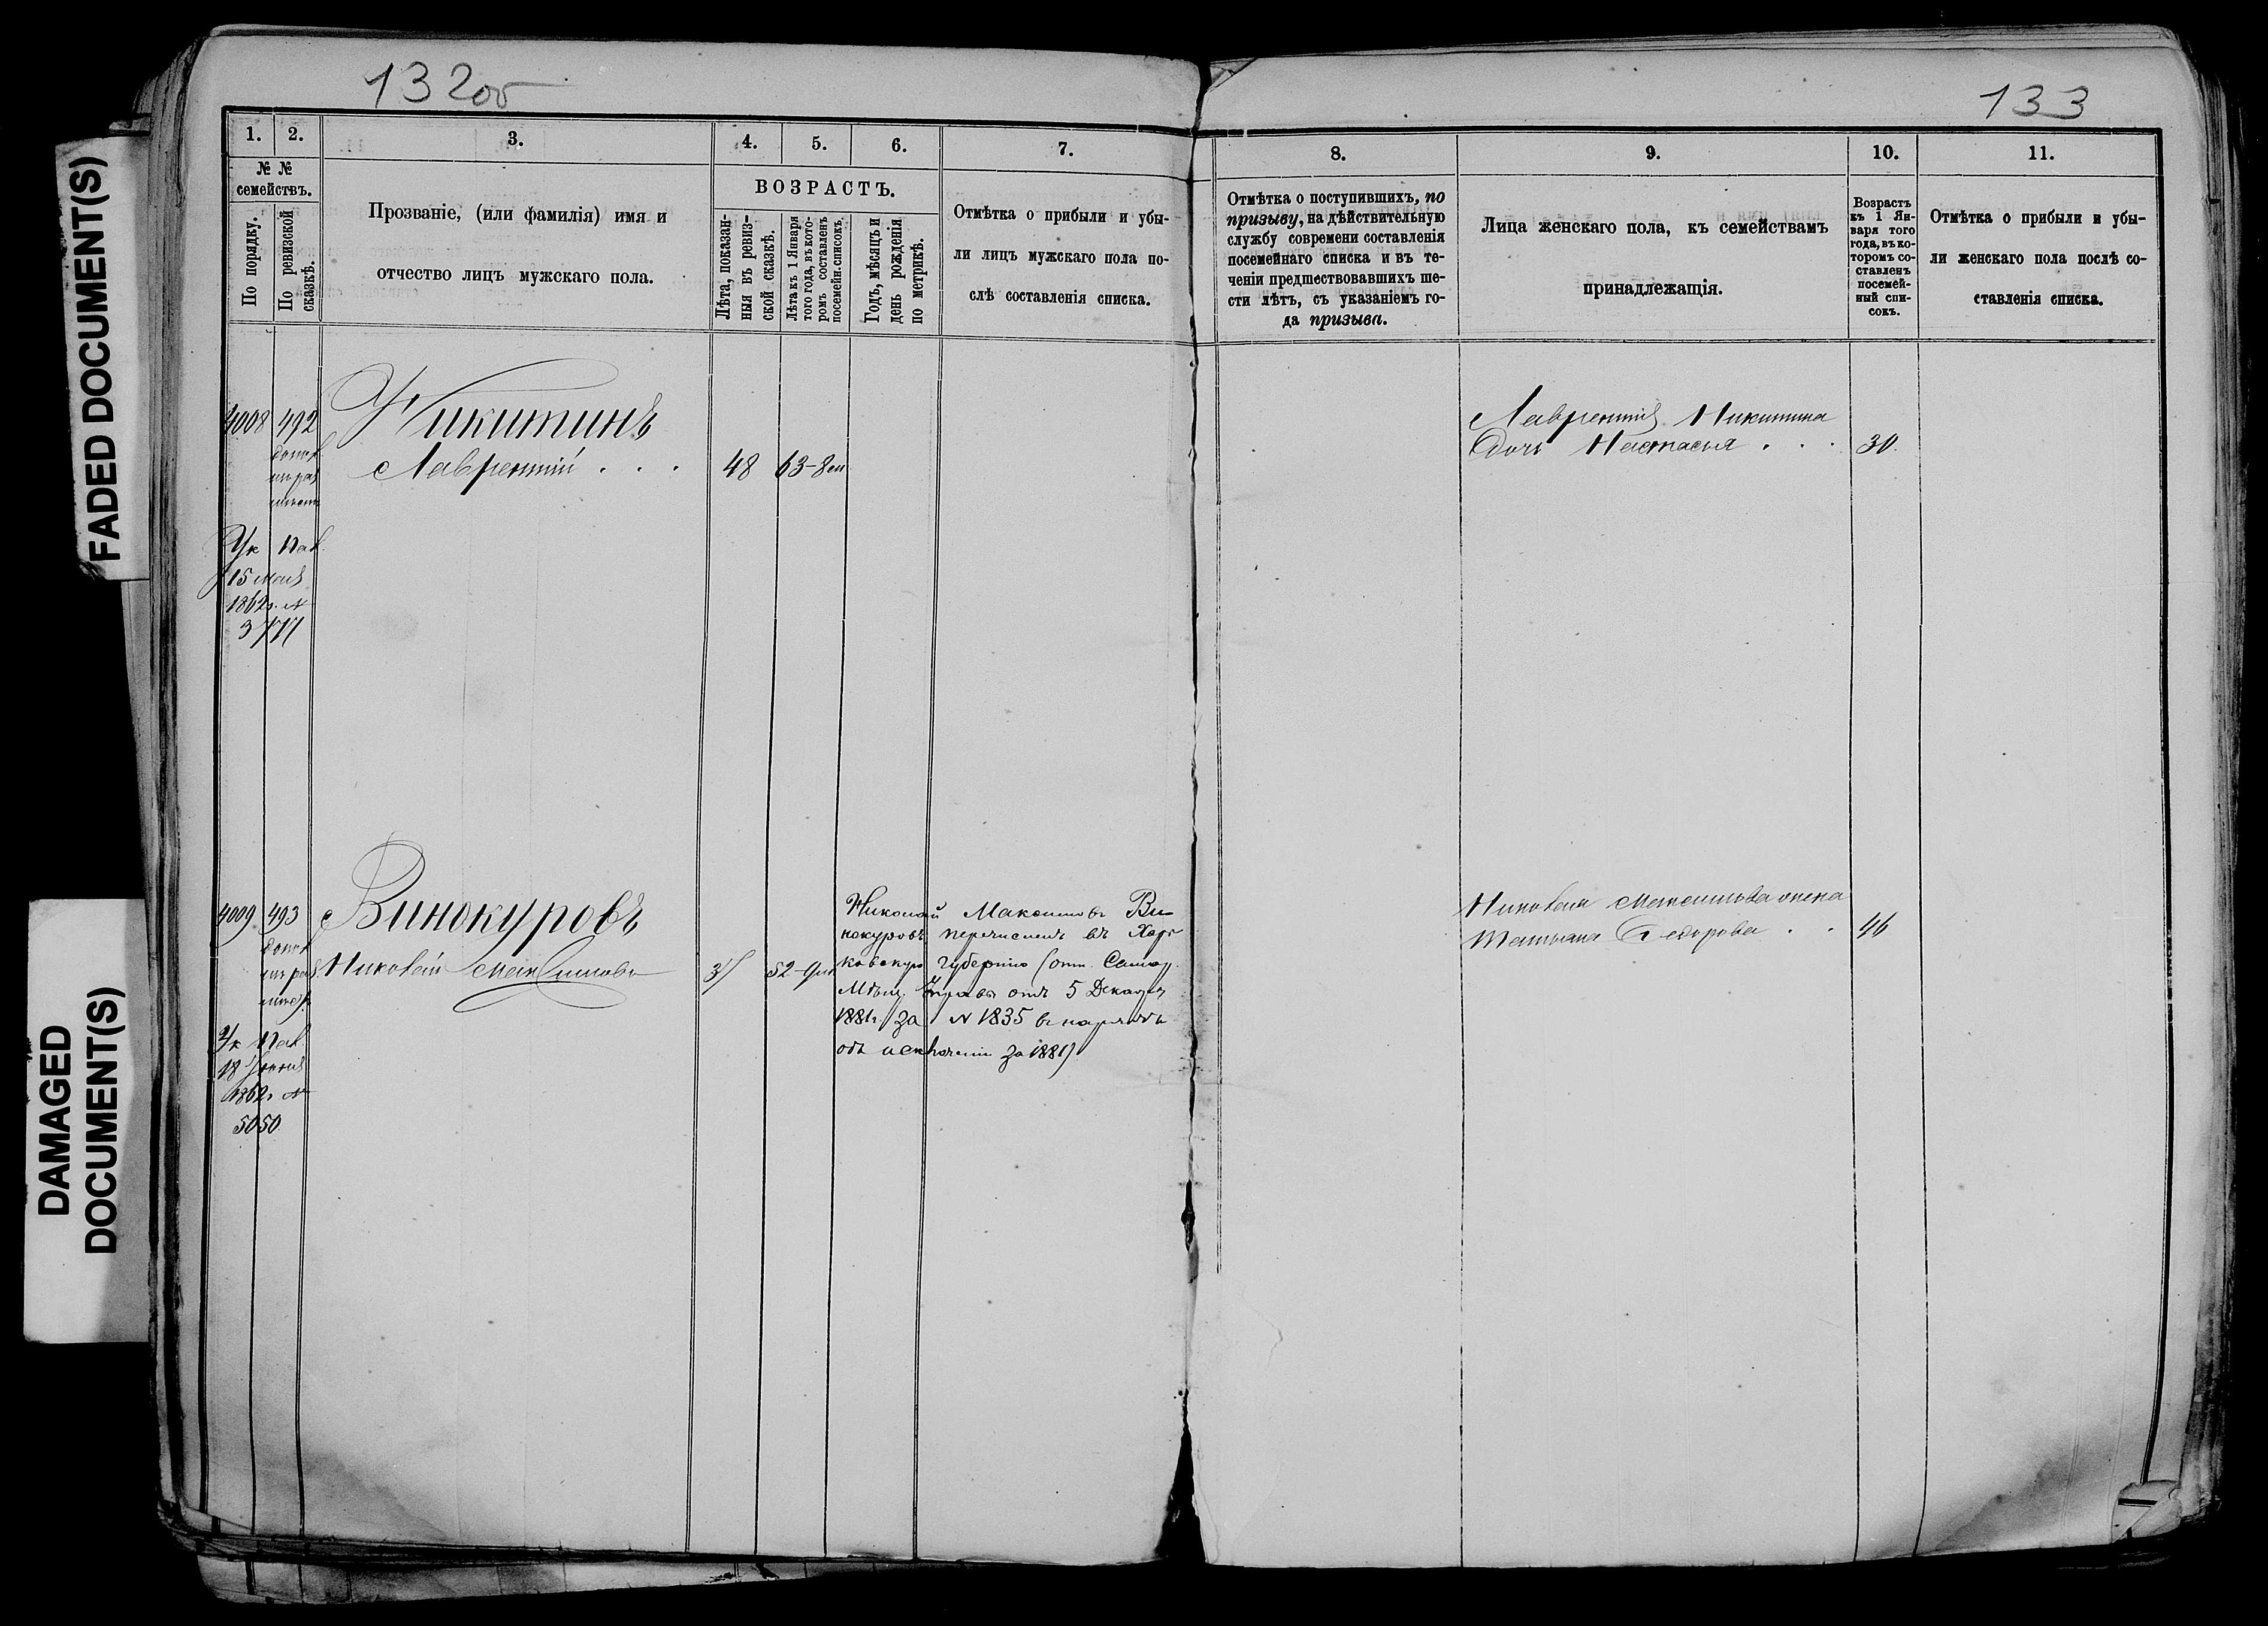 132об
133
FADED DOCUMENT(S)
DAMAGED
DOCUMENT(S)
1.
2.
3.
4.
5.
6.
7.
8.
9.
10.
11.
№ №
семействъ.
По порядку.
По ревизской
сказкѣ.
Прозваніе, (или фамилія) имя и
отчество лицъ мужскаго пола.
ВОЗРАСТЪ.
Лѣта, показан-
ныя въ ревиз-
ской сказкѣ.
Лѣта къ 1 Января
того года, въ кото-
ромъ составленъ
посемейн. списокъ.
Годъ, мѣсяцъ и
день рожденія
по метрикѣ.
Отмѣтка о прибыли и убы-
ли лицъ мужскаго пола по-
слѣ составленія списка.
Отмѣтка о поступившихъ, по
призыву, на дѣйствительную
службу современи составленія
посемейнаго списка и въ те-
ченіи предшествовавшихъ ше-
сти лѣтъ, съ указаніемъ го-
да призыва.
Лица женскаго пола, къ семействамъ
принадлежащія.
Возрастъ
къ 1 Ян-
варя того
года, въ ко-
торомъ со-
ставленъ
посемей-
ный спи-
сокъ.
Отмѣтка о прибыли и убы-
ли женскаго пола послѣ со-
ставленія списка.
4008 492
Никитинъ
Лаврентій . . . 48 63-8
Лаврентія Никитина
дочь Настасья . . . 30.
Ук Пал.
15 мая
1862г. №
3777
4009 493
Винокуровъ
Николай Максимовъ 37 52-9
Ук Пал
18 Іюня
1862г №
5050
Николай Максимовъ Ви-
нокуровъ перечисленъ въ Харь
ковскую Губернію (отн.
Мѣщ. Управы отъ 5 Декабря
1881г за № 1835 въ нарядѣ
объ исключеніи за 1881)
Николая Максимова жена
Татьяна Федорова . . 46